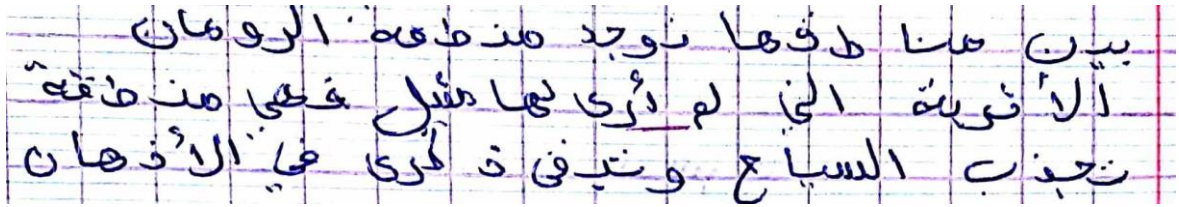 بين منا طقها توجد منطقة الرومان
الأ ثرية التي لم أرى لها مثيل فهي منطقة
تجذب السياح و تبقى ذ كرى في الأذهان